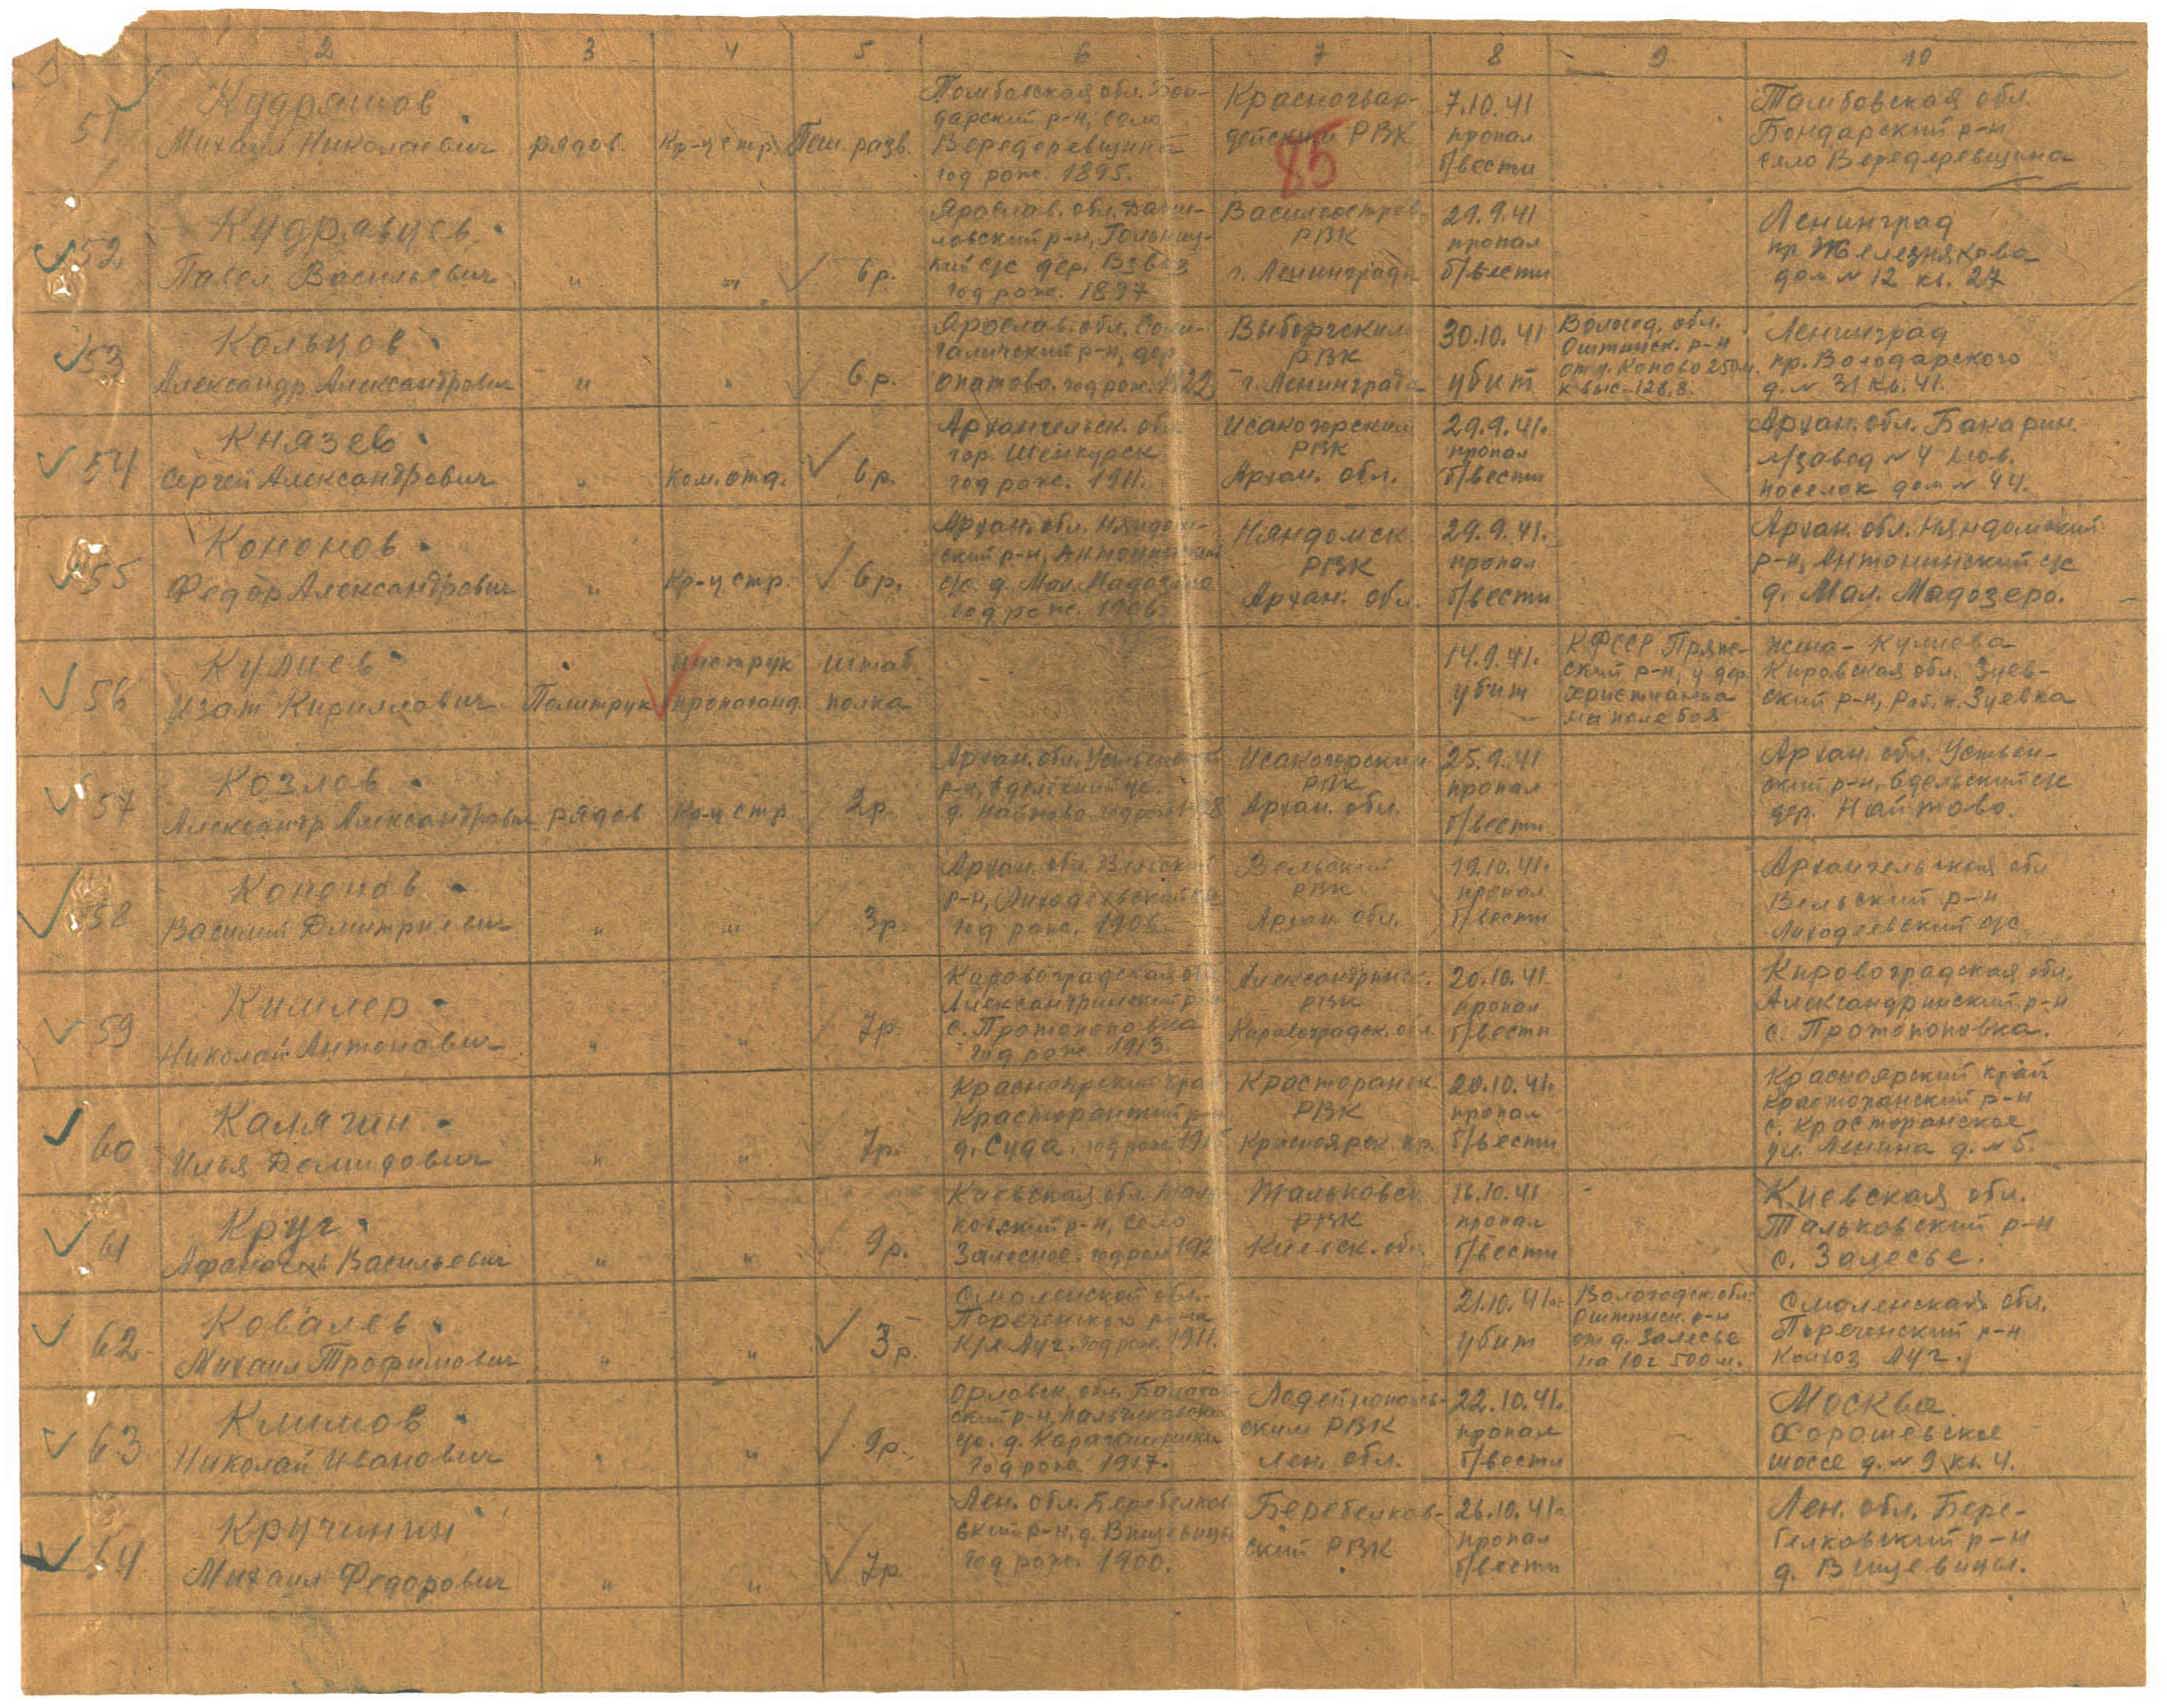 2 3 4 5 6 7 8 9 10
51 Кудряшов
Михаил Николаевич
рядов.
Кр-ц стр.
Пеш. разв.
Тамбовская обл. Бон-
дарский р-н, село
Вередеревщина
год рож. 1895.
Красногвар-
дейский РВК
85
7.10.41
пропал
б/вести
Тамбовская обл.
Бондарский р-н
село Вередеревщина
52 Кудрявцев
Павел Васильевич
"
"
6р.
Ярослав. обл. Дани-
ловский р-н,
с/с дер.
год рож. 1897
Василеостров.
РВК
г. Ленинграда
29.9.41
пропал
б/вести
Ленинград
пр. Железнякова
дом № 12 кв. 27
53 Кольцов
Александр Александрович
"
"
6р.
Ярослав. обл. Соли-
галичский р-н, дер.
год рож. 1922
Выборгский
РВК
г. Ленинграда
30.10.41
убит
Волого. обл.
Оштинск. р-н
от д. Коново 250м.
к выс-128,8.
Ленинград
пр. Володарского
д. № 31 кв. 41.
54 Князев
Сергей Александрович
"
Ком. отд.
6р.
Архангельск. обл.
гор. Шенкурск
год рож. 1911.
Исакогорский
РВК
Архан. обл.
29.9.41.
пропал
б/вести
Архан. обл. Бакарин.
л/завод № 4
поселок дом № 44.
55 Кононов
Федор Александрович
"
Кр-ц стр.
6р.
Архан. обл. Няндом-
ский р-н, Антонинский
с/с д. Мал. Мадозеро
год рож. 1906.
Няндомск
РВК
Архан. обл.
29.9.41.
пропал
б/вести
Архан. обл. Няндомский
р-н, Антонинский с/с
д. Мал. Мадозеро.
56 Кулиев
Изот Кириллович
Политрук
инструк
пропоганд.
штаб
полка
14.9.41.
убит
КФССР Пряже-
ский р-н, у дер.
на поле боя
жена - Кулиева
Кировская обл. Зуев-
ский р-н, раб. п. Зуевка
57 Козлов
Александр Александрович
рядов
Кр-ц стр
2р.
Архан. обл. Устьенский
р-н, с/с.
д. Найтово год рож.
Исакогорский
РВК
Архан. обл.
25.9.41
пропал
б/вести
Архан. обл. Устьен-
ский р-н, с/с
дер. Найтово.
58 Кононов
Василий Дмитриевич
"
"
3р.
Архан. обл. Вельский
р-н, Лиходеевский с/с
год рож. 1906.
Вельский
РВК
Архан. обл.
19.10.41.
пропал
б/вести
Архангельская обл
Вельский р-н
Лиходеевский с/с
59 Кишлер
Николай Антонович
"
"
7р.
Кировоградская обл.
Александрийский р-н
с. Протопоповка
год рож. 1913.
Александрийск.
РВК
Кировоградск. обл.
20.10.41.
пропал
б/вести
Кировоградская обл.
Александрийский р-н
с. Протопоповка.
60 Калягин
Илья Демидович
"
"
7р.
Красноярский край
р-н
д. Суда. год рож.
РВК
Красноярск. кр.
20.10.41.
пропал
б/вести
Красноярский край
р-н
ул. Ленина д. № 5.
61 Круг
Афанасий Васильевич
"
"
9р.
Киевская обл. Таль-
ковский р-н, село
Залесное. год рож.
Тальковск
РВК
Киевск. обл.
16.10.41
пропал
б/вести
Киевская обл.
Тальковский р-н
с. Залесье.
62 Ковалев
Михаил Трофимович
"
"
3р.
Смоленской обл.
Пореченского р-на
К/х Луч. год рож. 1911.
21.10.41.
убит
Вологодск. обл.
Оштинск. р-н
от д. Залесье
на юг 500м.
Смоленская обл.
Пореченский р-н
колхоз Луч.
63 Климов
Николай Иванович
"
"
9р.
Орловск. обл.
ский р-н,
с/с. д.
год рож. 1917.
Лодейнополь-
ский РВК
Лен. обл.
22.10.41.
пропал
б/вести
Москва.
Хорошевское
шоссе д. № 9 кв. 4.
64 Кручинин
Михаил Федорович
"
"
7р
Лен. обл. Беребелков-
ский р-н, д. Вищевицы
год рож. 1900.
Беребелков-
ский РВК
26.10.41.
пропал
б/вести
Лен. обл. Бере-
белковский р-н
д. Вищевицы.